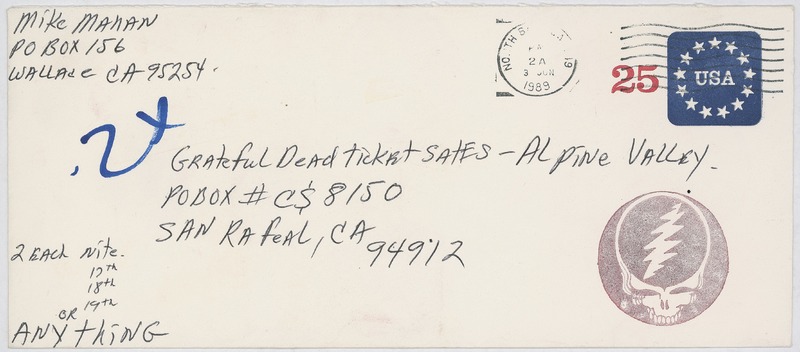 Mike Mahan
PO BOX 156
WALLACE CA 95254.
2x
GRATEFUL DEAD TICKET SALES - ALPINE VALLEY.
PO BOX # CS 8150
SAN RAFEAL, CA
94912
2 EACH NITE.
17th
18th
OR 19th
ANYTHING
PM
2A
3 JUN
1989
25
USA